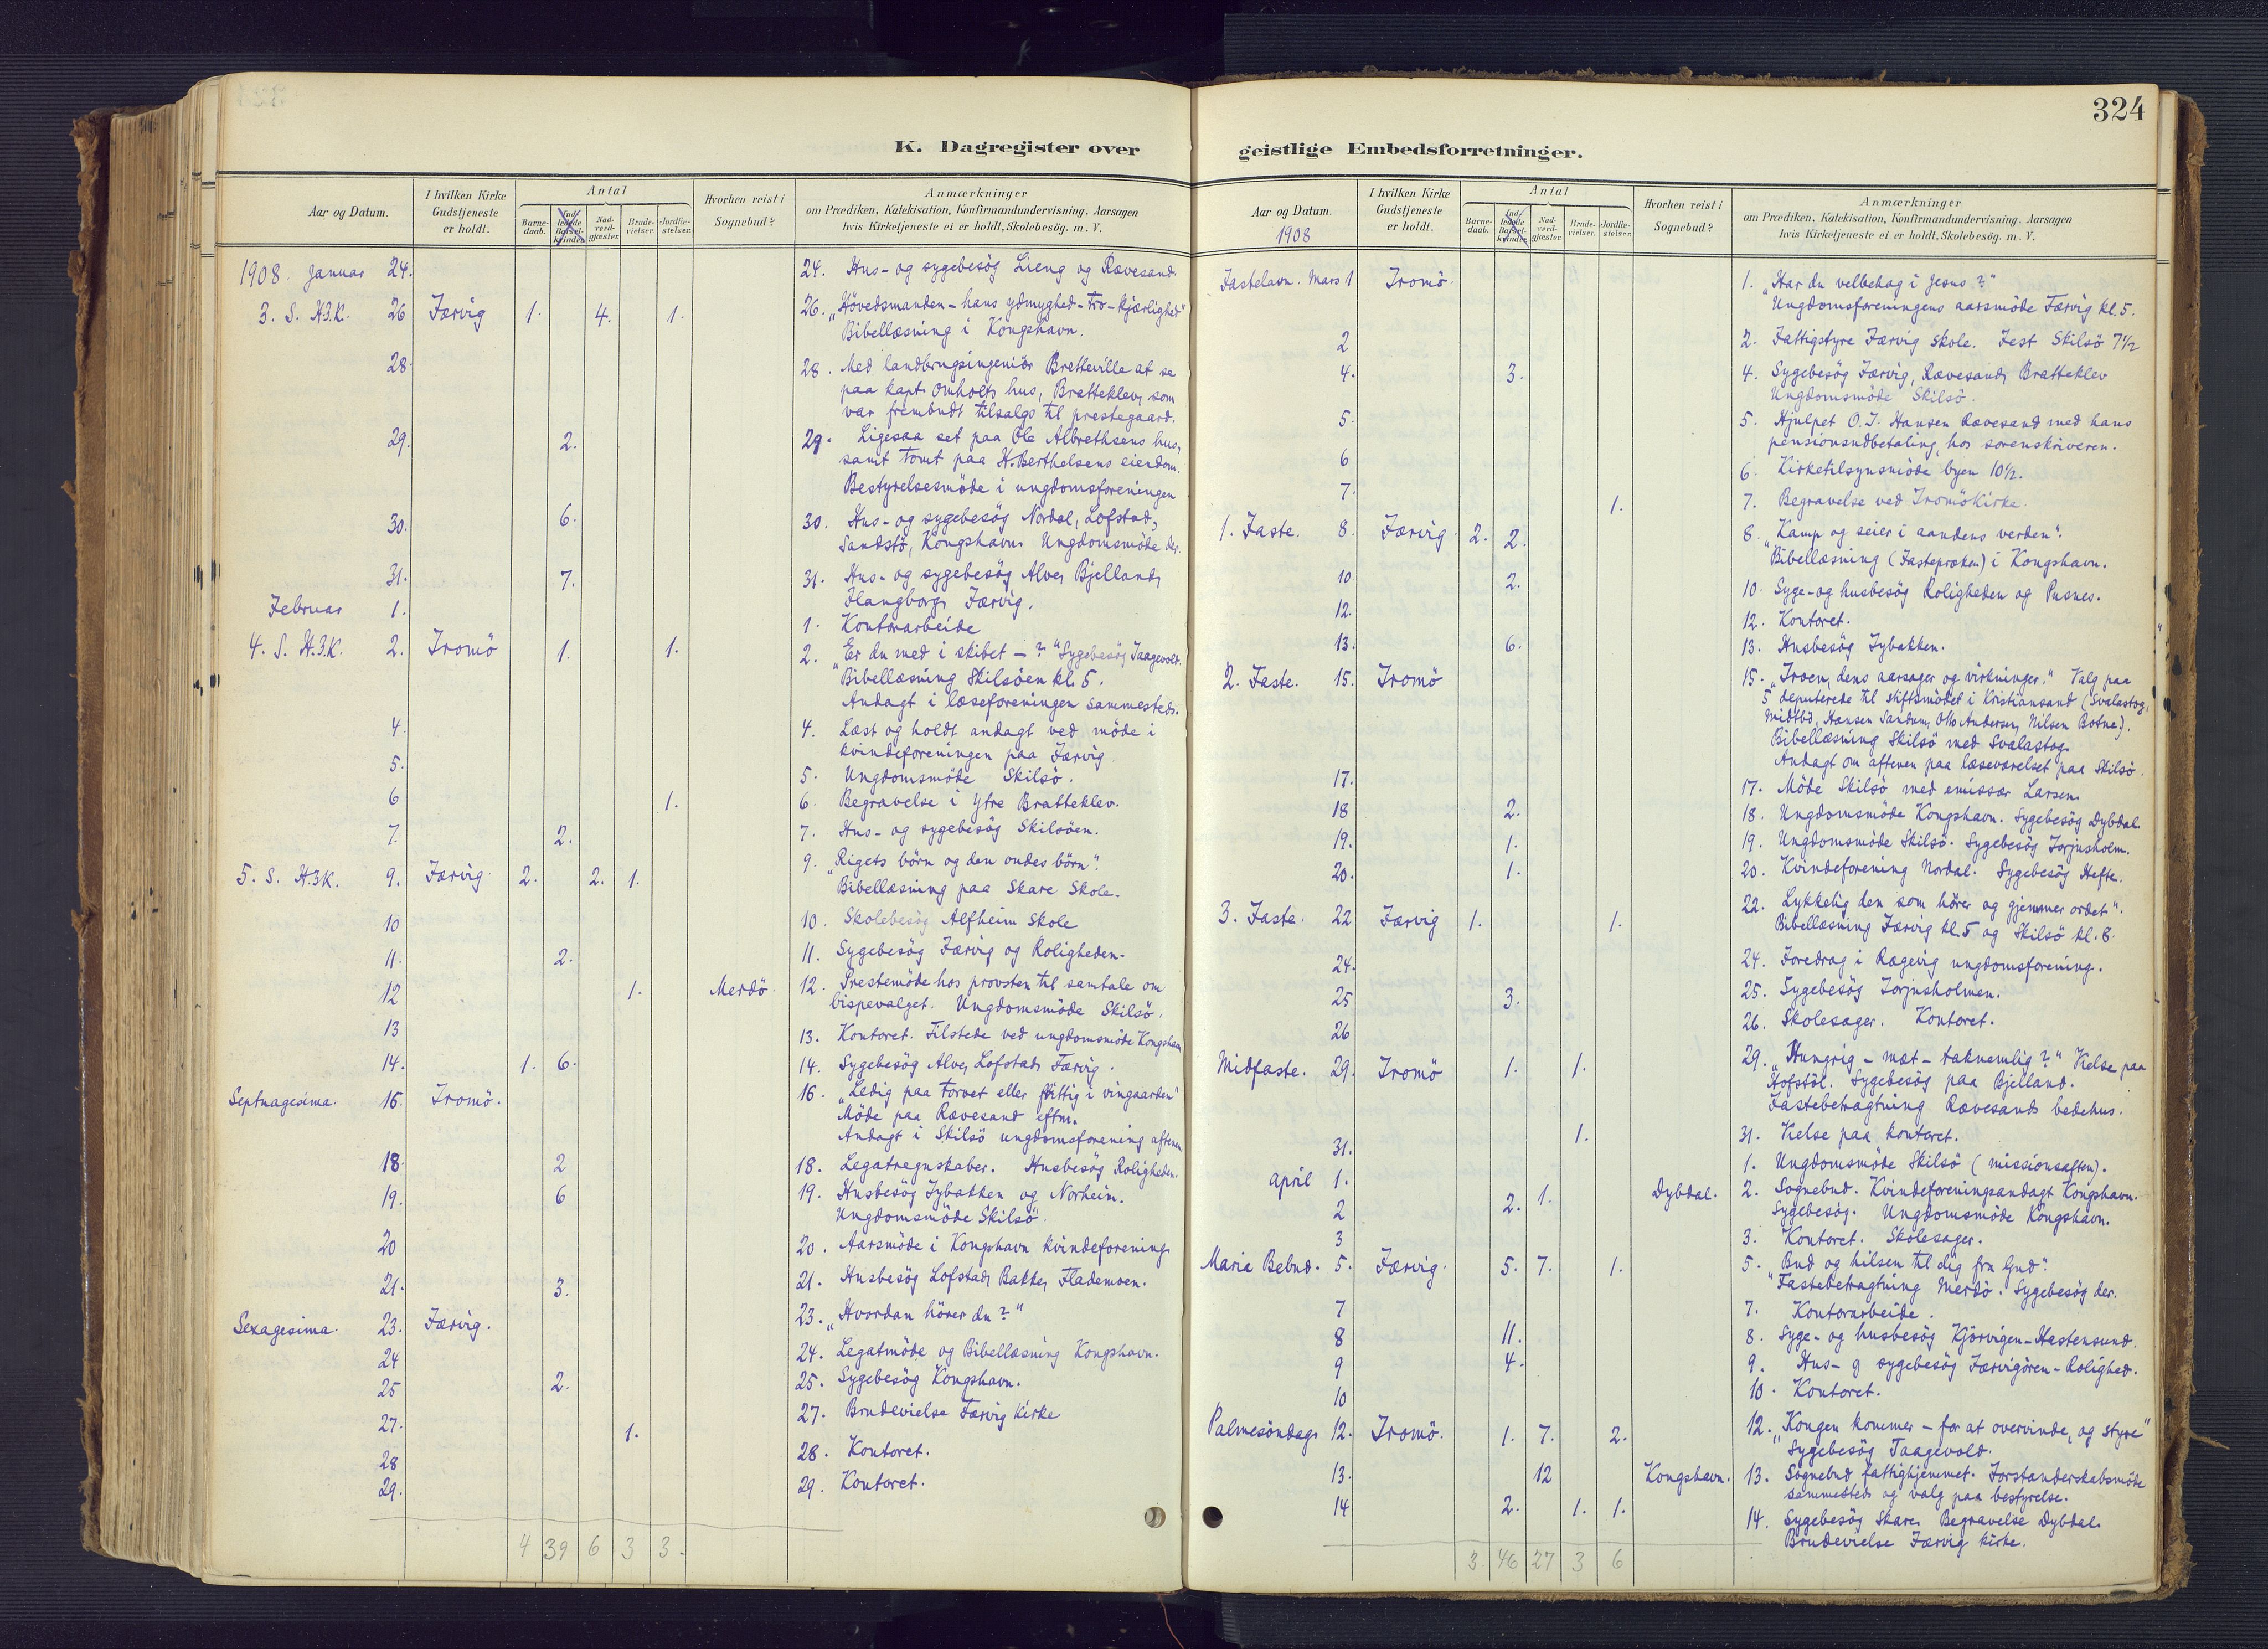 324
K. Dagregister over
Aar og Datum.
I hvilken Kirke Gudstjeneste er holdt.
Antal
Barnedaab.
Indledede Barselkvinder
Nadverdgjester
Brudevielser.
Jordfæstelser.
Hvorhen reist i Sognebud?
Anmærkninger
om Prædiken, Katekisation, Konfirmandundervisning. Aarsagen
hvis Kirketjeneste ei er holdt, Skolebesøg. m. V.
1908. Januar 24. 24. Hus- og sygebesøg Lieng og Rævesand
3. S. H3K. 26 Færvig 1. 4. 1. 26. „Høvedsmanden - hans ydmyghed - tro - kjærlighed"
Bibellæsning i Kongshavn.
28. 28. Med landbrugsingeniør Bretteville at se
paa kapt. Omholts hus, Bratteklev, som
var frembudt tilsalgs til prestegaard.
29. 2. 29. Ligesaa set paa Ole Albrethsens hus,
samt tomt paa H. Berthelsens eiendom.
Bestyrelsesmøde i ungdomsforeningen
30. 6. 30. Hus- og sygebesøg Nordal, Lofstad,
Sandstø, Kongshavn. Ungdomsmøde der.
31. 7. 31. Hus- og sygebesøg Alve, Bjelland,
Flangborg, Færvig.
Februar 1. 1. Kontorarbeide
4. S. H.3.K. 2. Tromø 1. 1. 2. „Er du med i skibet - ?" Sygebesøg Taagevold.
Bibellæsning Skilsøen kl. 5.
Andagt i læseforeningen sammesteds.
4. 4. Læst og holdt andagt ved møde i
kvindeforeningen paa Færvig
5. 5. Ungdomsmøde Skilsø.
6 1. 6. Begravelse i Ytre Bratteklev.
7. 2. 7. Hus- og sygebesøg Skilsøen.
5. S. H.3K. 9. Færvig. 2. 2. 1. 9. „Rigets børn og den ondes børn".
Bibellæsning paa Skare Skole.
10 10. Skolebesøg Alfheim Skole
11. 2. 11. Sygebesøg Færvig og Roligheden.
12 1. Merdø. 12. Prestemøde hos provsten til samtale om
bispevalget. Ungdomsmøde Skilsø.
13 13. Kontoret. Tilstede ved ungdomsmøde Kongshavn
14. 1. 6. 14. Sygebesøg Alve, Lofstad, Færvig.
Septuagesima. 16. Tromø. 16. „Ledig paa torvet eller flittig i vingaarden"
Møde paa Rævesand eftm.
Andagt i Skilsø ungdomsforening aftenen.
18. 2 18. Legatregnskaber. Husbesøg Roligheden.
19. 6 19. Husbesøg Tybakken og Norheim.
Ungdomsmøde Skilsø.
20 20. Aarsmøde i Kongshavn kvindeforening.
21. 3. 21. Husbesøg Lofstad, Bakke, Flademoen.
Sexagesima. 23. Færvig. 23. „Hvordan hører du?"
24 24. Legatmøde og Bibellæsning Kongshavn.
25 2. 25. Sygebesøg Kongshavn.
27. 1. 27. Brudevielse Færvig Kirke
28 28. Kontoret.
29. 29. Kontoret.
4 39 6 3 3.
geistlige Embedsforretninger.
Aar og Datum.
1908
I hvilken Kirke Gudstjeneste er holdt.
Antal
Barnedaab.
Indledede Barselkvinder
Nadverdgjester
Brudevielser.
Jordfæstelser.
Hvorhen reist i Sognebud?
Anmærkninger
om Prædiken, Katekisation, Konfirmandundervisning. Aarsagen
hvis Kirketjeneste ei er holdt, Skolebesøg. m. V.
Fastelavn. Mars 1 Tromø. 1. „Har du velbehag i Jesus?"
Ungdomsforeningens aarsmøde Færvig kl. 5.
2 2. Fattigstyre Færvig skole. Fest Skilsø 7½
4. 3. 4. Sygebesøg Færvig, Rævesand, Bratteklev
Ungdomsmøde Skilsø.
5. 5. Hjulpet O. T. Hansen Rævesand med hans
pensionsudbetaling, hos sorenskriveren.
6 6. Kirketilsynsmøde byen 10½.
7. 1. 7. Begravelse ved Tromø Kirke.
1. Faste. 8. Færvig. 2. 2. 8. „Kamp og seier i aandens verden".
Bibellæsning (Fastepræken) i Kongshavn.
10 2. 10. Syge- og husbesøg Roligheden og Pusnes.
12. 12. Kontoret.
13. 6. 13. Husbesøg Tybakken.
2. Faste. 15. Tromø 15. „Troen, dens aarsager og virkninger." Valg paa
5 deputerede til stiftsmødet i Kristiansand (Svalastog,
Midtbø, Hansen Sandum, Otto Andersen, Nilsen Botne).
Bibellæsning Skilsø med Svalastog.
Andagt om aftenen paa læseværelset paa Skilsø.
17. 17. Møde Skilsø med emissær Larsen.
18 2. 18. Ungdomsmøde Kongshavn. Sygebesøg Dybdal.
19. 1. 19. Ungdomsmøde Skilsø. Sygebesøg Torjusholm.
20. 1. 20. Kvindeforening Nordal. Sygebesøg Hefte.
3. Faste. 22 Færvig 1. 1. 22. Lykkelig den som hører og gjemmer ordet".
Bibellæsning Færvig kl. 5 og Skilsø kl. 8.
24. 24. Foredrag i Rægevig ungdomsforening.
25 3. 25. Sygebesøg Torjusholmen.
26 26. Skolesager. Kontoret.
Midfaste. 29. Tromø 1. 1. 29. „Hungrig - mæt - taknemlig?" Vielse paa
Hofstøl. Sygebesøg paa Bjelland.
Fastebetragtning Rævesands bedehus.
31. 1. 31. Vielse paa kontoret.
april 1. 1. Ungdomsmøde Skilsø (missionsaften).
2 2. 1. Dybdal. 2. Sognebud. Kvindeforeningsandagt Kongshavn.
Sygebesøg. Ungdomsmøde Kongshavn.
3 3. Kontoret. Skolesager.
Maria Bebud. 5. Færvig. 5. 7. 1. 5. „Bud og hilsen til dig fra Gud".
Fastebetragtning Merdø. Sygebesøg der.
7 7. Kontorarbeide.
8 11. 8. Syge- og husbesøg Kjørvigen - Hastensund.
9 4. 9. Hus- og sygebesøg Færvigøren - Rolighed.
10 10. Kontoret.
Palmesøndag 12. Tromø. 1. 7. 2. 12. „Kongen kommer - for at overvinde, og styre"
Sygebesøg Taagevold.
13. 12 Kongshavn. 13. Sognebud fattighjemmet. Forstanderskabsmøte
sammesteds og valg paa bestyrelse.
14 2. 1. 1. 14. Sygebesøg Skare. Begravelse Dybdal.
Brudevielse Færvig kirke.
3. 46 27 3 6